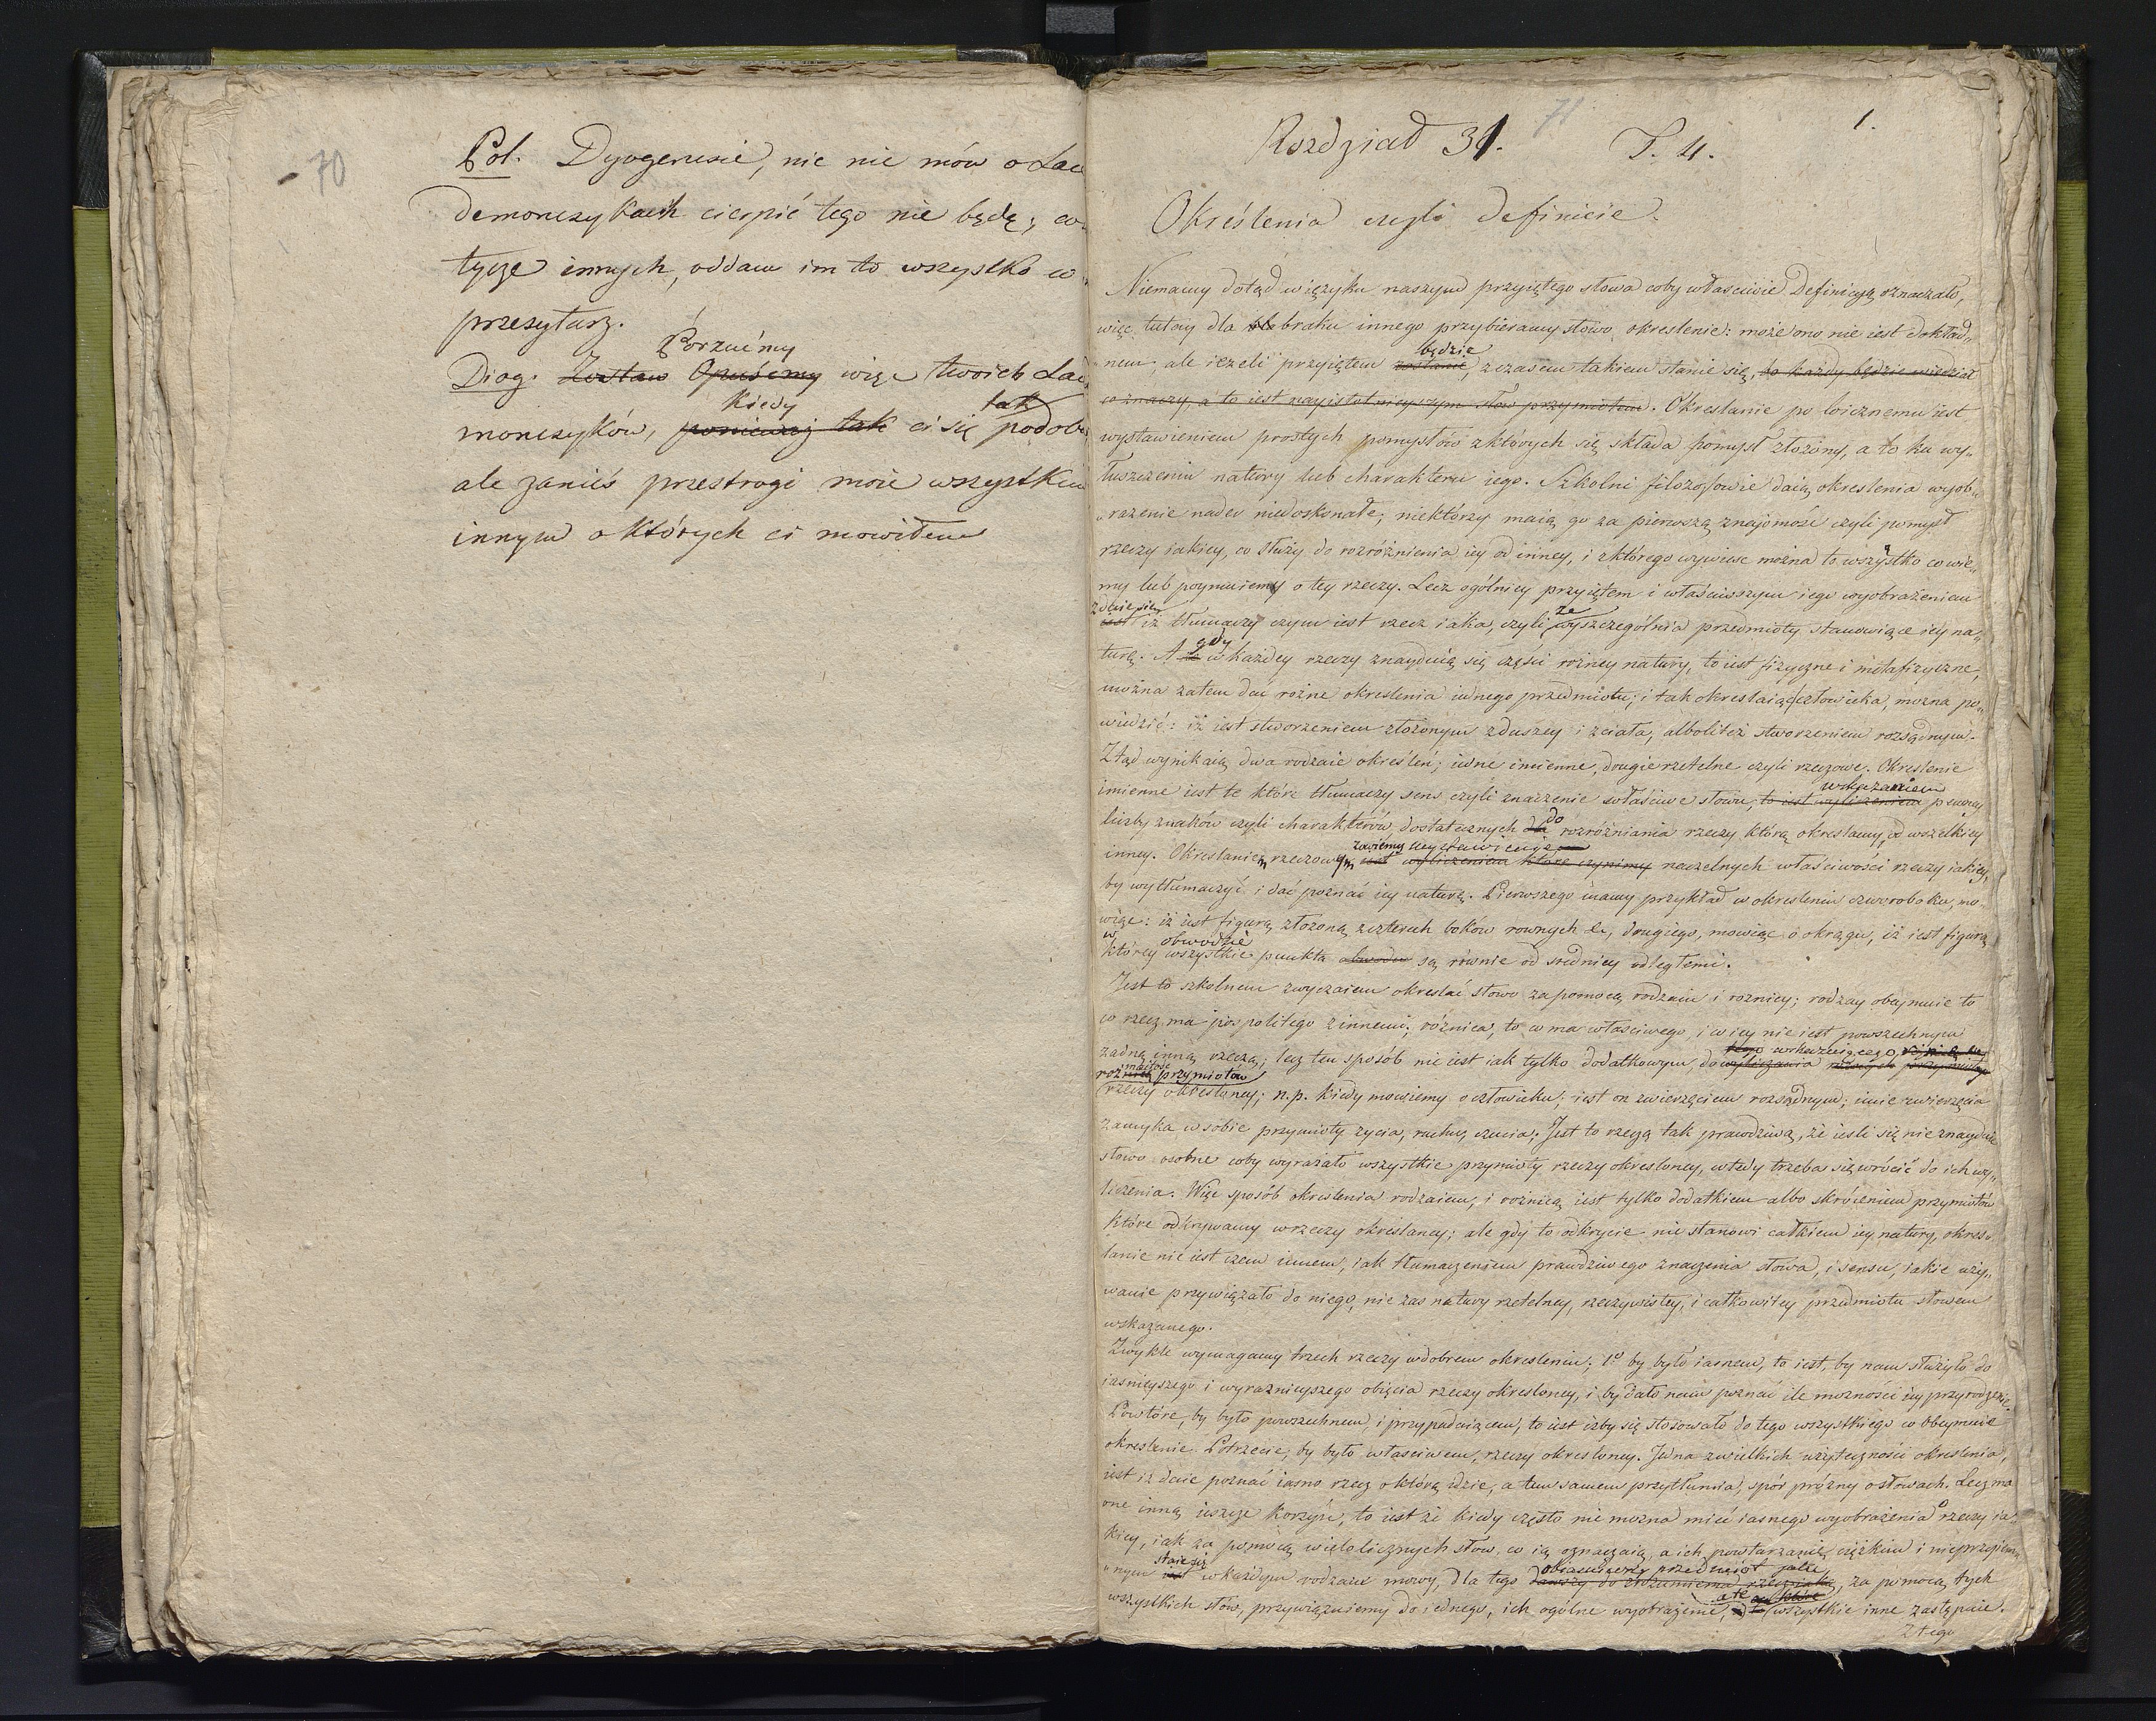 70
Pol. Dyogenesie, nic nie mów o Lace
demończykach cierpić tego nie będę; co
tycze innych, oddam im to wszystko co
przesyłasz.
Porzućmy
Diog. Zostaw Opuśćmy więc twoich Lace
Kiedy tak
monczyków, ponieważ tak ci się podoba
ale zanieś przestrogi moie wszystkim
innym o których ci mowiłem
71
Rozdział 31. T. 4. 1.
Określenia czyli definicie.
Niemamy dotąd w ięzyku naszym przyiętego słowa coby właściwie Definicyą oznaczało,
więc tutay dla braku innego przybieramy słowo określenie: może ono nie iest dokład„
będzie
nem, ale ieżeli przyiętem zostanie, z czasem takiem stanie się, bo każdy będzie wiedział
co znaczy, a to iest nayistotnieyszym słow przymiotem. Okreslanie po loicznemu iest
wystawieniem prostych pomysłów z których się składa pomysł złożony, a to ku wy„
łuszczeniu natury lub charakteru iego. Szkolni filozofowie daią okreslenia wyob„
„rażenie nader niedoskonałe; niektórzy maią go za pierwszą znajomość czyli pomysł
rzeczy iakiey, co służy do rozróżnienia iey od inney, i z którego wywieść można to wszystko co wie„
my lub poymuiemy o tey rzeczy. Lecz ogólniey przyiętem i właściwszym iego wyobrażeniem
zdaie się że
iest iż tłumaczy czym iest rzecz iaka, czyli wyszczególnia przedmioty stanowiące iey na„
gdy
turę. A w każdey rzeczy znayduią się części rożney natury, to iest fizyczne i metafizyczne,
można zatem dać rożne okreslenia iednego przedmiotu; i tak okreslaiąc człowieka, można po„
wiedzić: iż iest stworzeniem złożonym z duszy i z ciała, albolitéż stworzeniem rozsądnym.
Ztąd wynikaią dwa rodzaie określeń; iedne imienne, drugie rzetelne czyli rzeczowe. Okreslenie
wskazaniem
imienne iest te które tłumaczy sens czyli znaczenie właściwe słowu, to iest wyliczeniem pewney
do
liczby znaków czyli charakterów dostatecznych dla rozróżniania rzeczy którą okreslamy, od wszelkiey
zowiemy wystawienie
inney. Okreslaniem rzeczowym iest wyliczeniem które czynimy naczelnych właściwości rzeczy iakiey,
by wytłumaczyć i dać poznać iey naturę. Pierwszego mamy przykład w okresleniu czworoboku, mo„
wiąc: iż iest figurą złożoną z czterech boków rownych &, drugiego, mowiąc o okręgu, iż iest figurą
w obwodzie
którey wszystkie punkta obwodu są równie od srednicy odległemi.
Jest to szkolnem zwyczaiem okreslać słowo za pomocą rodzaiu i roznicy; rodzay obeymuie to
co rzecz ma pospolitego z innemi; różnica, to co ma właściwego, i co iey nie iest powszechnym
żadną inną rzeczą; lecz ten sposób nie iest iak tylko dodatkowym, do wyliczania
rożnych przymiotów
rzeczy okresloney; n.p. kiedy mowiemy o człowieku; iest on zwierzęciem rozsądnym; imie zwierzęcia
zamyka w sobie przymioty zycia, ruchu, czucia; Jest to rzeczą tak prawdziwą, że iesli się nie znayduie
słowo osobne coby wyrażało wszystkie przymioty rzeczy okresloney, wtedy trzeba się wrócić do ich wy„
liczenia. Więc sposób okreslenia rodzaiem, i roznicą iest tylko dodatkiem albo skróceniem przymiotów
które odkrywamy w rzeczy okreslaney; ale gdy to odkrycie nie stanowi całkiem iey natury, okres„
lanie nie iest czem innem, iak tłumaczeniem prawdziwego znaczenia słowa, i sensu, iakie uży„
wanie przywiązało do niego, nie zas natury rzetelney, rzeczywistey, i całkowitey przedmiotu słowem
wskazanego.
Zwykle wymagamy trzech rzeczy w dobrem okresleniu; 1º by było iasnem, to iest, by nam służyło do
iasnieyszego i wyrazniejszego obięcia rzeczy okresloney, i by dało nam poznać ile możności iey przyrodzenie.
Powtóre, by było powszechnem, i przypadaiącem; to iest iżby się stosowało do tego wszystkiego co obeymuie
okreslenie. Potrzecie, by było właściwem, rzeczy okresloney. Jedna z wielkich użyteczności okreslenia,
iest iż daie poznać iasno rzecz o którą idzie, a tem samem przytłumia, spór próżny o słowach. Lecz ma
one inną ieszcze korzyść, to iest że kiedy często nie można mieć iasnego wyobrażenia o rzeczy ia„
kiey, iak za pomocą wielolicznych słow, co ią oznaczaią, a ich powtarzanie ciężkiem i nieprzyiem„
staie się obiaśniwszy przedmiot iaki
„nym iest w każdym rodzaiu mowy, dla tego dawszy do zrozumienia rzecz iaką, za pomocą tych
a te
wszystkich słów, przywiązuiemy do iednego, ich ogólne wyobrażenie, wszystkie inne zastępuie.
Z tego